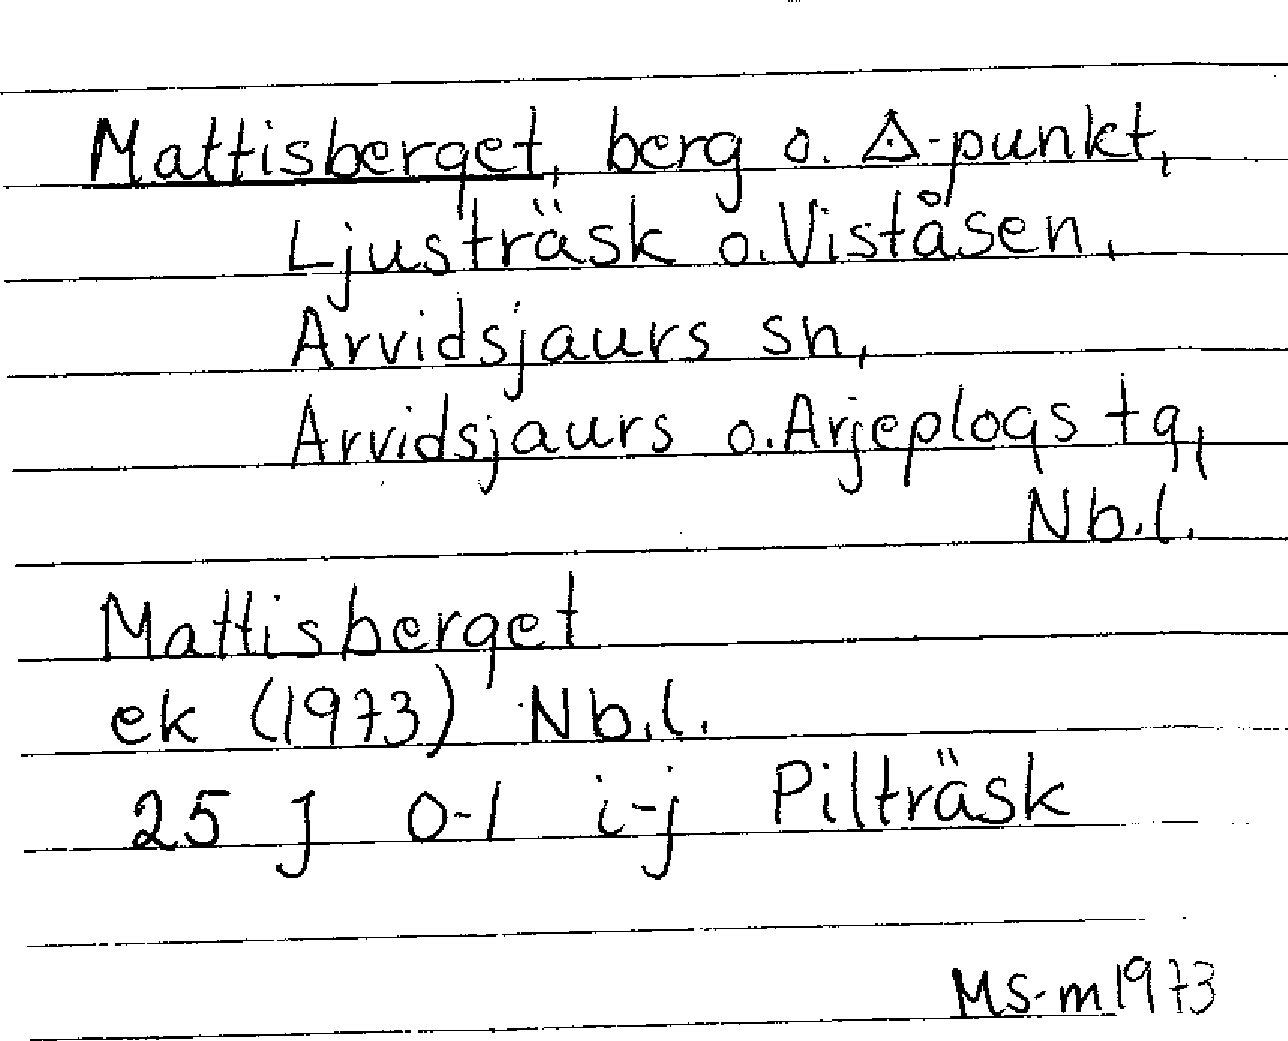 Mattisberget, berg o. △-punkt,
Ljusträsk o. Viståsen,
Arvidsjaurs sn,
Arvidsjaurs o. Arjeplogs tg,
Nb.l.
Mattisberget
ek (1973) Nb.l.
25 J 0-1 i-j Pilträsk
MS-m 1973